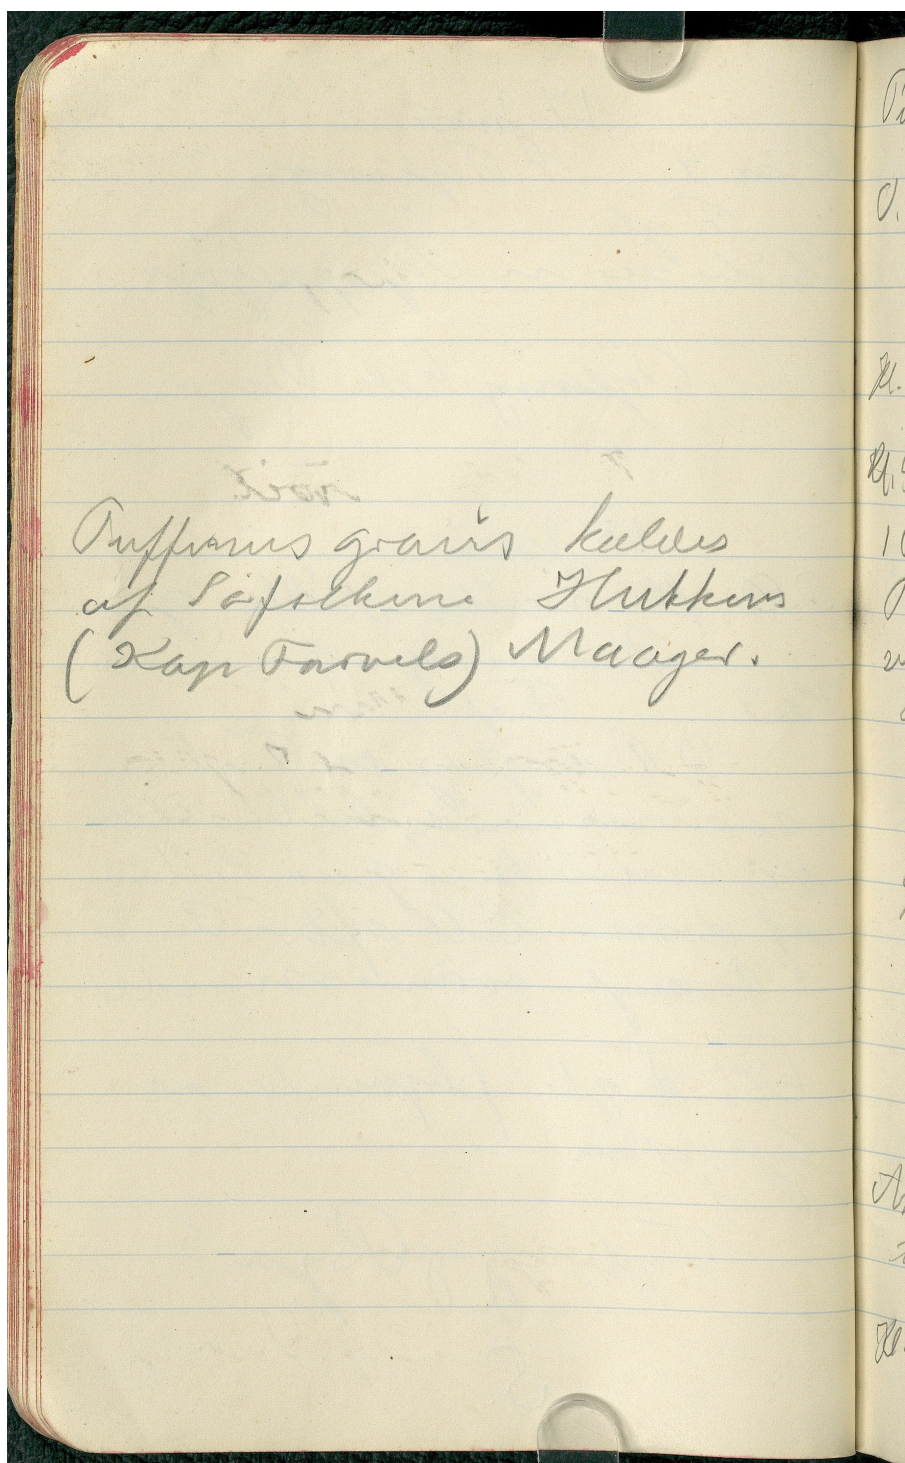 Puffinus gravis kaldes
af Søfolkene Hukkens
(Kap Farvels) Maager.